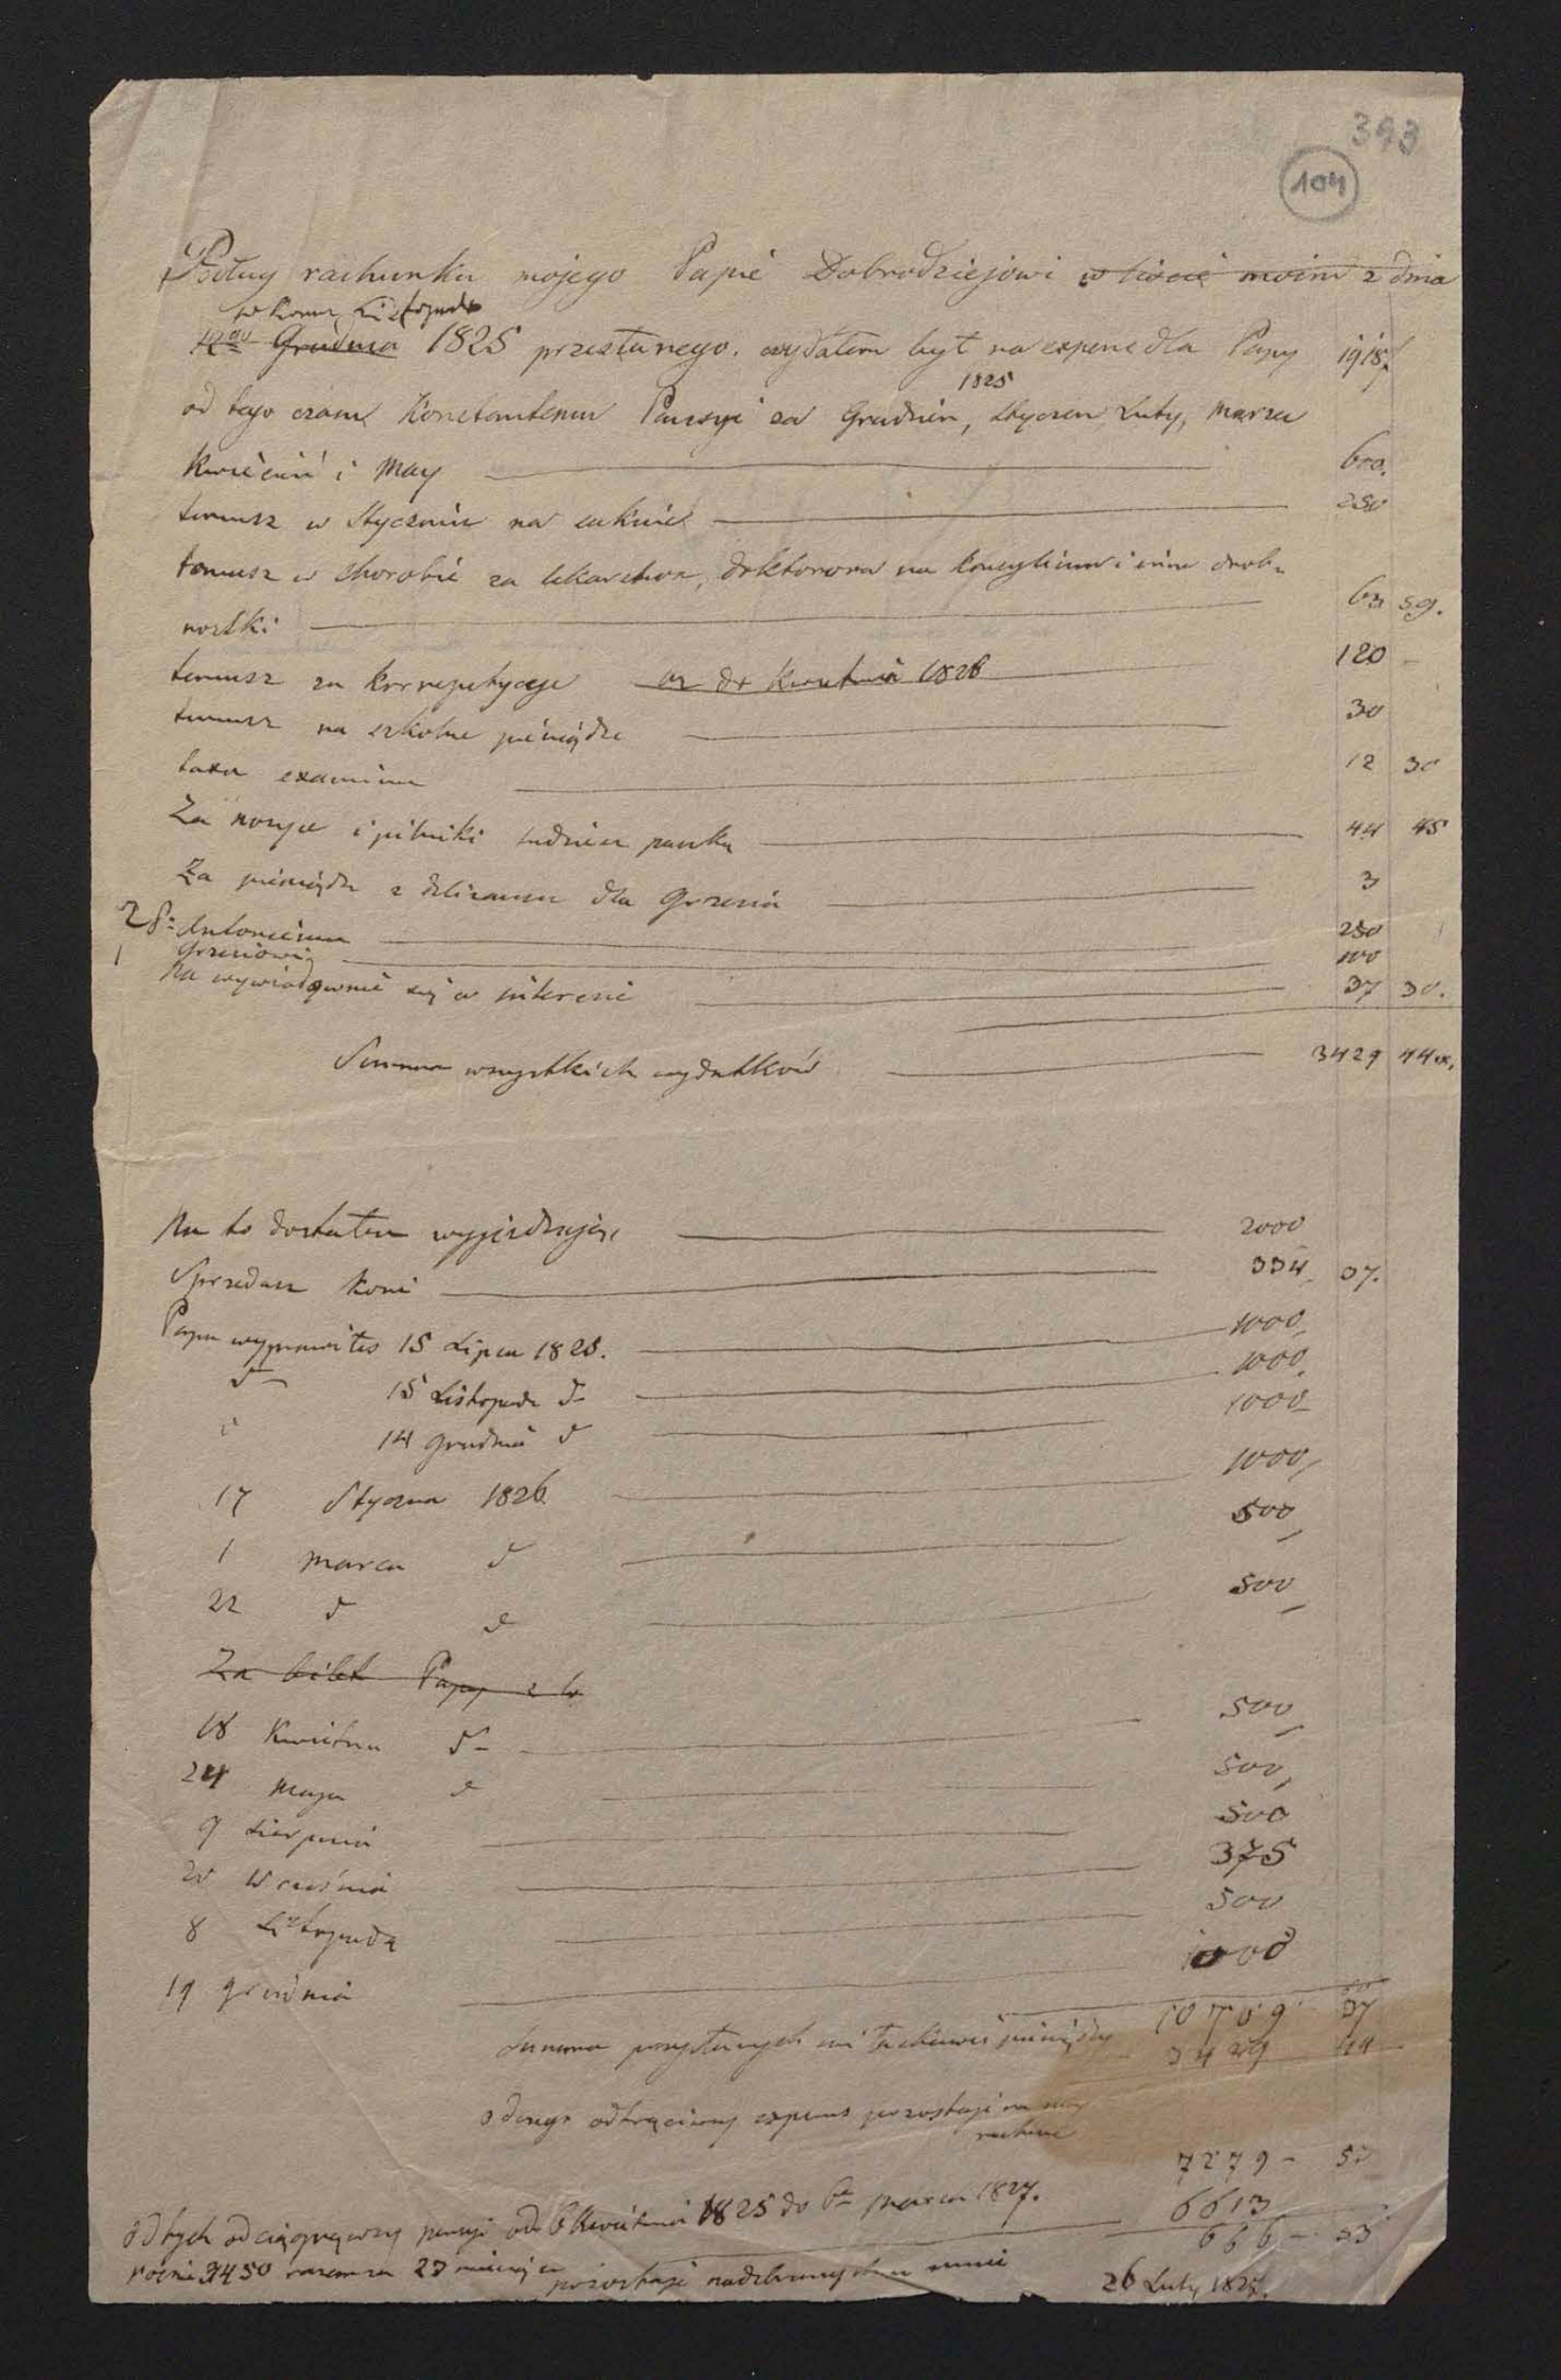 393
104
Podług rachunku mojego Papie Dobrodziejowi w liście moim z dnia
w końcu Listopada
12go Grudnia 1825 przesłanego. wydałem był na expens dla Papy 1918,
1825
od tego czasu Konstantemu Pensyi za Grudzień, Styczeń, Luty, Marzec
Kwiecień i May 600.
temusz w Styczniu na suknie 250
temusz w chorobie za lekarstwa, doktorowi na konsylium i inne drob-
nostki 63 59.
temusz za korrepetycye do Kwietnia 1826 120 -
temusz na szkolne pieniądze 30
taxa examinu 12 30
Za nożyce i pilniki 44 45
Za pieniądze z dla Grzesia 3
28: Antoniemu 250
1 Grzesiowi 100
Na wywiadywanie się w interesie 37 30.
Summa wszystkich wydatków 3429 44
Na to dostałem wyjeżdżając 2000
Sprzedasz koni 334, 37.
Papa wyprawiłeś 15 Lipca 1825. 1000,
d- 15 Listopada d- 1000,
d 14 Grudnia d 1000
17 Stycznia 1826 1000,
1 Marca d 500,
22 d d 500,
Za bilet Papy z
18 Kwietnia d- 500,
24 Maja d 500,
9 Sierpnia 500
20 Września 375
8 Listopada 500
19 Grudnia 1000
Summa przysłanych mi łaskawie pieniędzy 10709 37
3429 44
odczego odtrąciwszy expens pozostaje na mój
rachunek
7279 - 53
od tych odciągnąwszy pensyi od 6 Kwietnia 1825 do 6go Marca 1827. 6613
rocznie 3450 razem za 23 miesiące pozostaje nadebranych u mnie 666 - 53
26 Luty 1827.